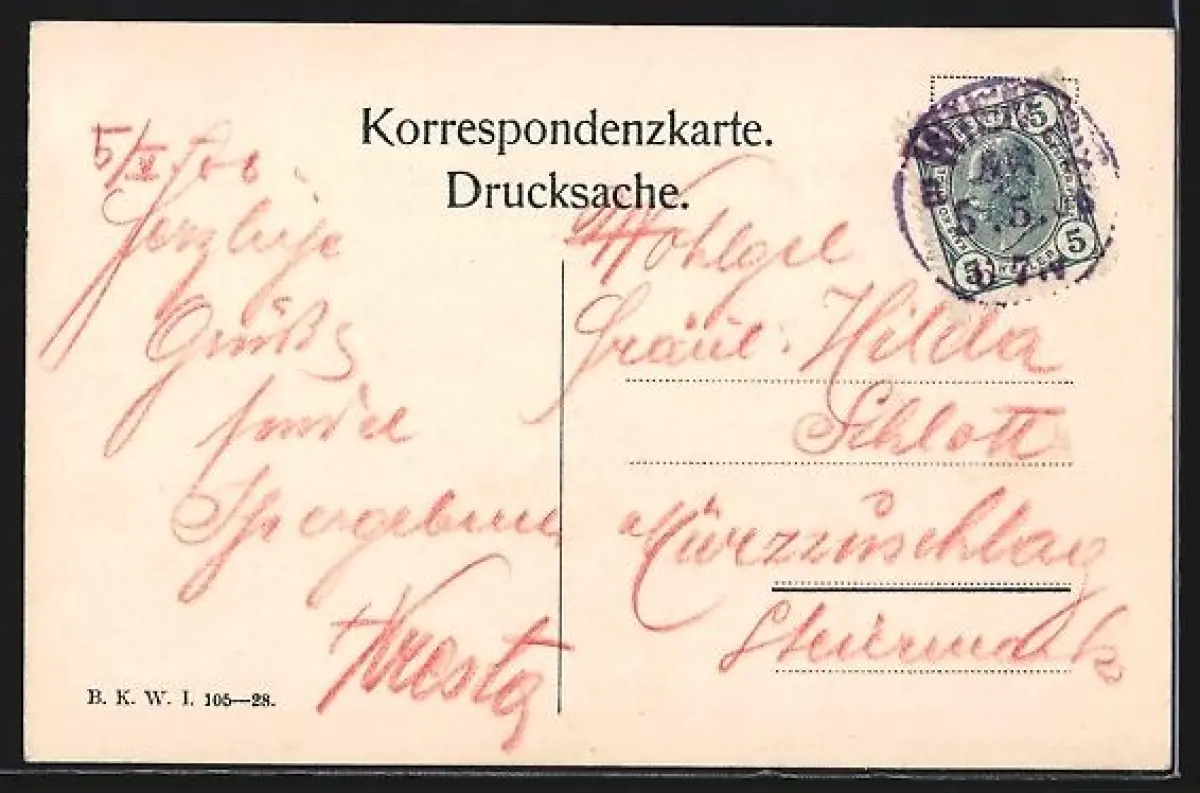 Korrespondenzkarte.
Drucksache.
5/V 06
Herzliche
Grüße
sendet
Ihr ergebener
Wohlgeb
Fräul. Hilda
Schlott
Mürzzuschlag
Steiermark
5
5
5
5. 5.
B. K. W. I. 105—28.